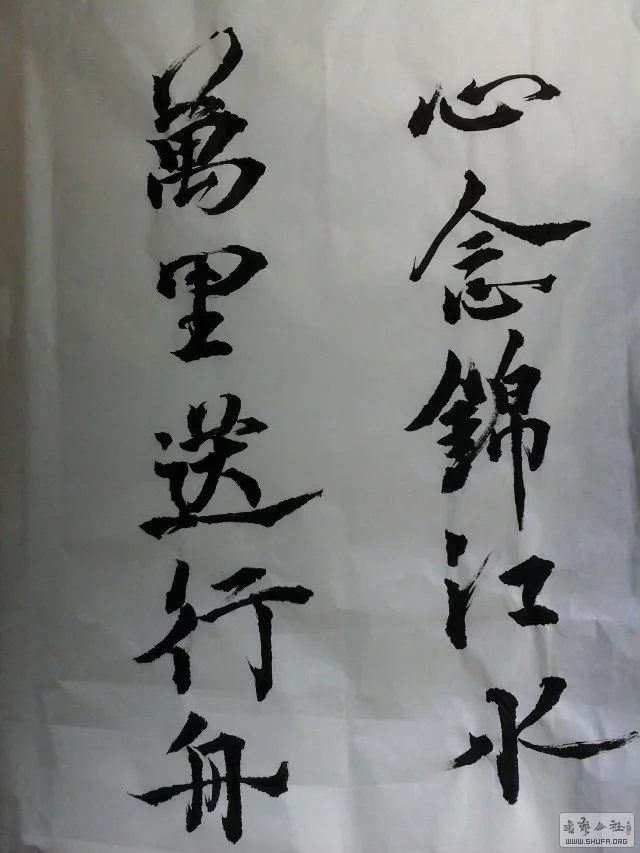 心念錦江水
萬里送行舟
書藝公社
WWW.SHUFA.ORG